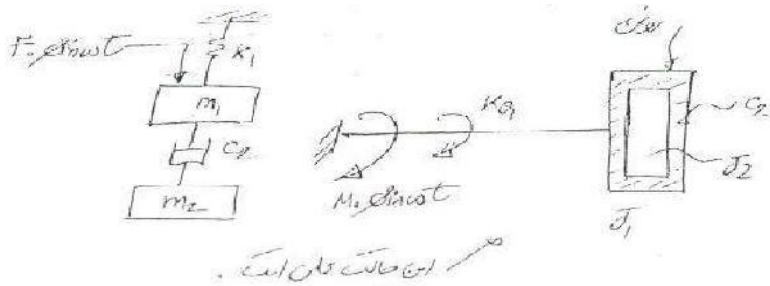 F₀ sinωt
K₁
m₁
C₂
m₂
Kθ₁
M₀ sinωt
روغن
C₂
J₂
J₁
این حالت کلی است.